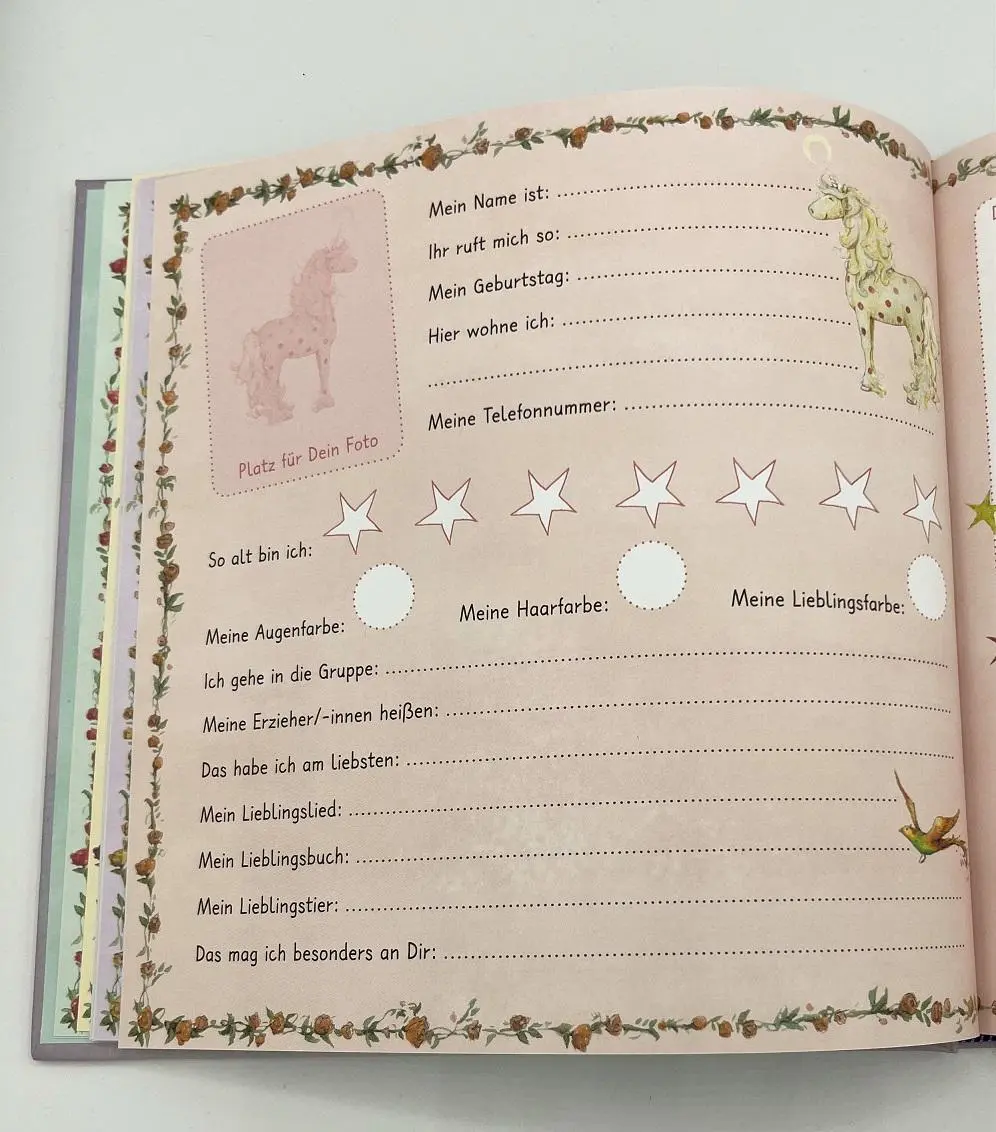 Mein Name ist:
Ihr ruft mich so:
Mein Geburtstag:
Hier wohne ich:
Meine Telefonnummer:
Platz für Dein Foto
So alt bin ich:
Meine Augenfarbe: Meine Haarfarbe: Meine Lieblingsfarbe:
Ich gehe in die Gruppe:
Meine Erzieher/-innen heißen:
Das habe ich am liebsten:
Mein Lieblingslied:
Mein Lieblingsbuch:
Mein Lieblingstier:
Das mag ich besonders an Dir: